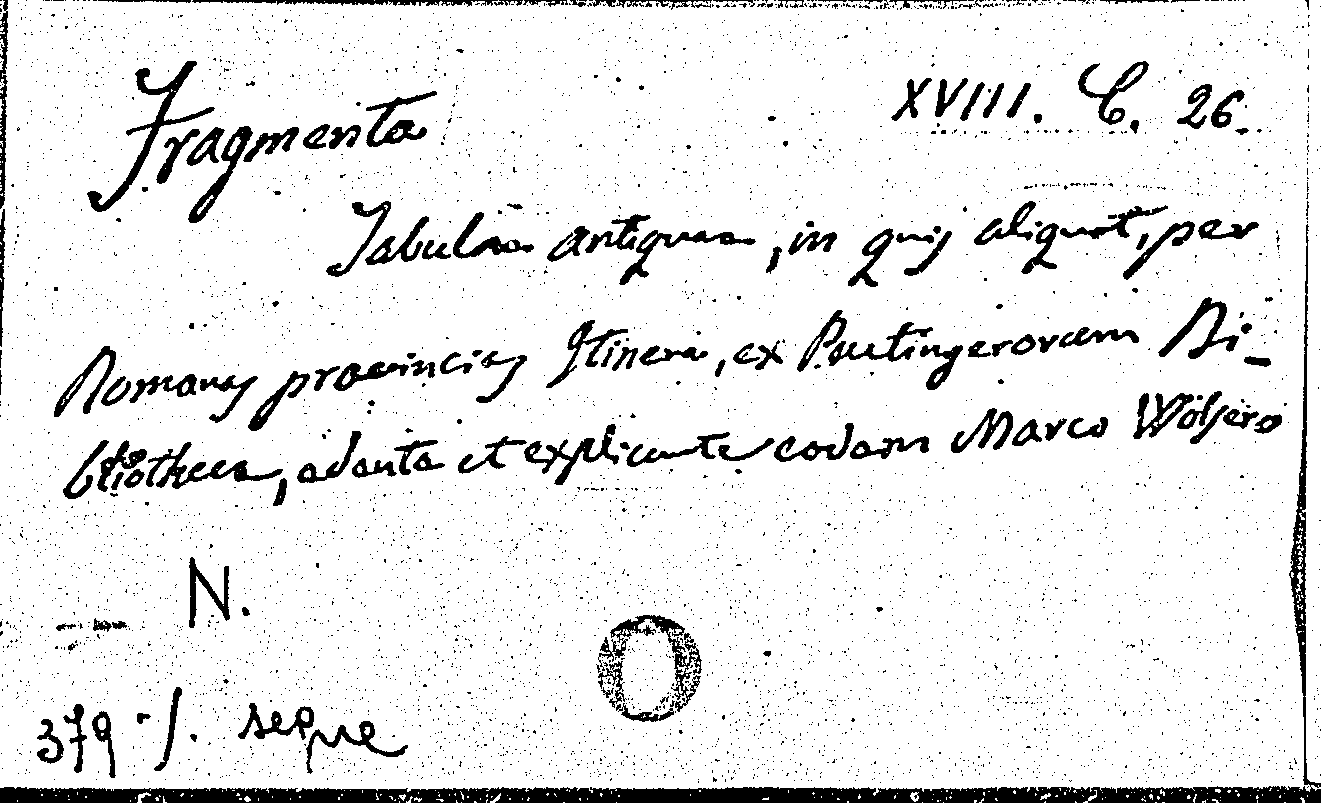 Fragmenta
XVIII. C. 26.
Tabulae antiquae, in quis aliquot, per
Romanas provincias Itinera, ex Peutingerorum Bi-
bliotheca, edente et explicante eodem Marco Wölsero
N.
379 ·/. seque